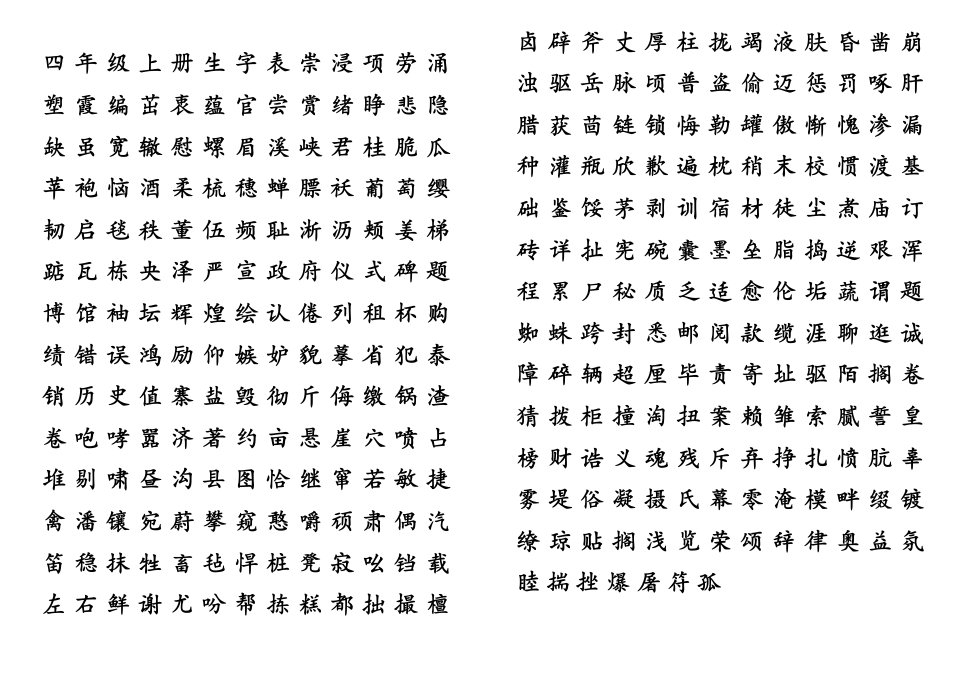 四年级上册生字表崇浸项劳涌
塑霞编茁衷蕴官尝赏绪睁悲隐
缺虽宽辙慰螺眉溪峡君桂脆瓜
苹袍恼酒柔梳穗蝉膘袄葡萄缨
韧启毯秩董伍频耻淅沥颊姜梯
踮瓦栋央泽严宣政府仪式碑题
博馆袖坛辉煌绘认倦列租杯购
绩错误鸿励仰嫉妒貌摹省犯泰
销历史值寨盐毁彻斤侮缴锅渣
卷咆哮嚣济著约亩悬崖穴喷占
堆剔啸昼沟县图恰继窜若敏捷
禽潘镶宛蔚攀窥憨嚼顽肃偶汽
笛稳抹牲畜毡悍桩凳寂吆铛载
左右鲜谢尤吩帮拣糕都拙撮檀
卤辟斧丈厚柱拢竭液肤昏凿崩
浊驱岳脉顷普盗偷迈惩罚啄肝
腊获茴链锁悔勒罐傲惭愧渗漏
种灌瓶欣歉遍枕稍末校惯渡基
础鉴馁茅剥训宿材徒尘煮庙订
砖详扯宪碗囊墨垒脂捣逆艰浑
程累尸秘质乏适愈伦垢蔬谓题
蜘蛛跨封悉邮阅款缆涯聊逛诚
障碎辆超厘毕责寄址驱陌搁卷
猜拨柜撞淘扭案赖雏索腻誓皇
榜财诰义魂残斥弃挣扎愤肮辜
雾堤俗凝摄氏幕零淹模畔缀镀
缭琼贴搁浅览荣颂辞律奥益氛
睦揣挫爆屠符孤